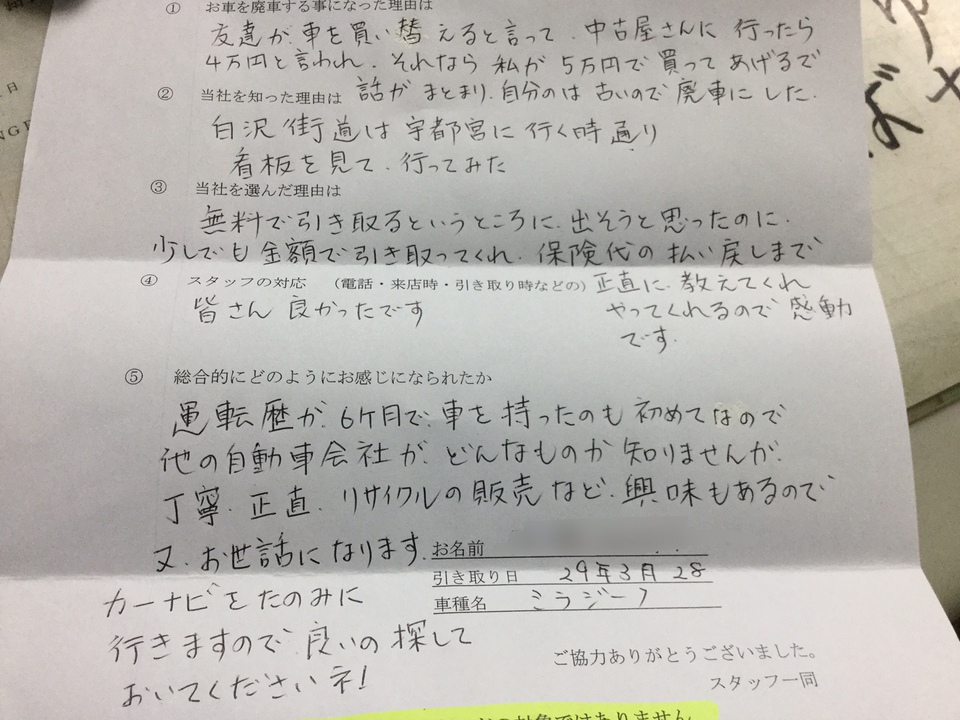 ① お車を廃車する事になった理由は
友達が、車を買い替えると言って、中古屋さんに行ったら
4万円と言われ、それなら私が5万円で買ってあげるで
② 当社を知った理由は 話がまとまり、自分のは古いので廃車にした。
白沢街道は宇都宮に行く時通り
看板を見て、行ってみた
③ 当社を選んだ理由は
無料で引き取るというところに、出そうと思ったのに、
少しでも金額で引き取ってくれ、保険代の払い戻しまで
④ スタッフの対応 (電話・来店時・引き取り時などの) 正直に、教えてくれ
皆さん良かったです やってくれるので感動
です。
⑤ 総合的にどのようにお感じになられたか
運転歴が、6ケ月で、車を持ったのも初めてなので
他の自動車会社が、どんなものか知りませんが、
丁寧、正直、リサイクルの販売など、興味もあるので
又、お世話になります。 お名前
引き取り日 29年3月28
カーナビをたのみに 車種名 ミラジーノ
行きますので、良いの探して
おいてくださいネ!
ご協力ありがとうございました。
スタッフ一同
対象ではありません